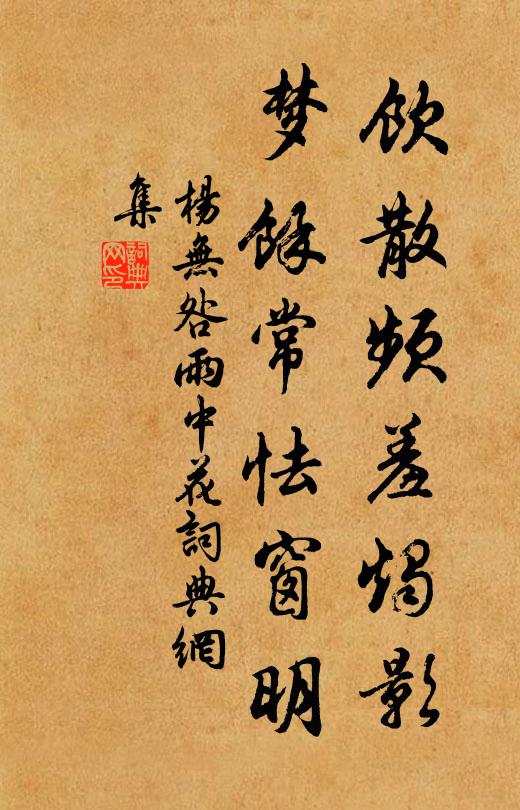 飲散頻羞燭影
梦餘常怯窗明
楊無咎雨中花詞典網
集
詞典网印